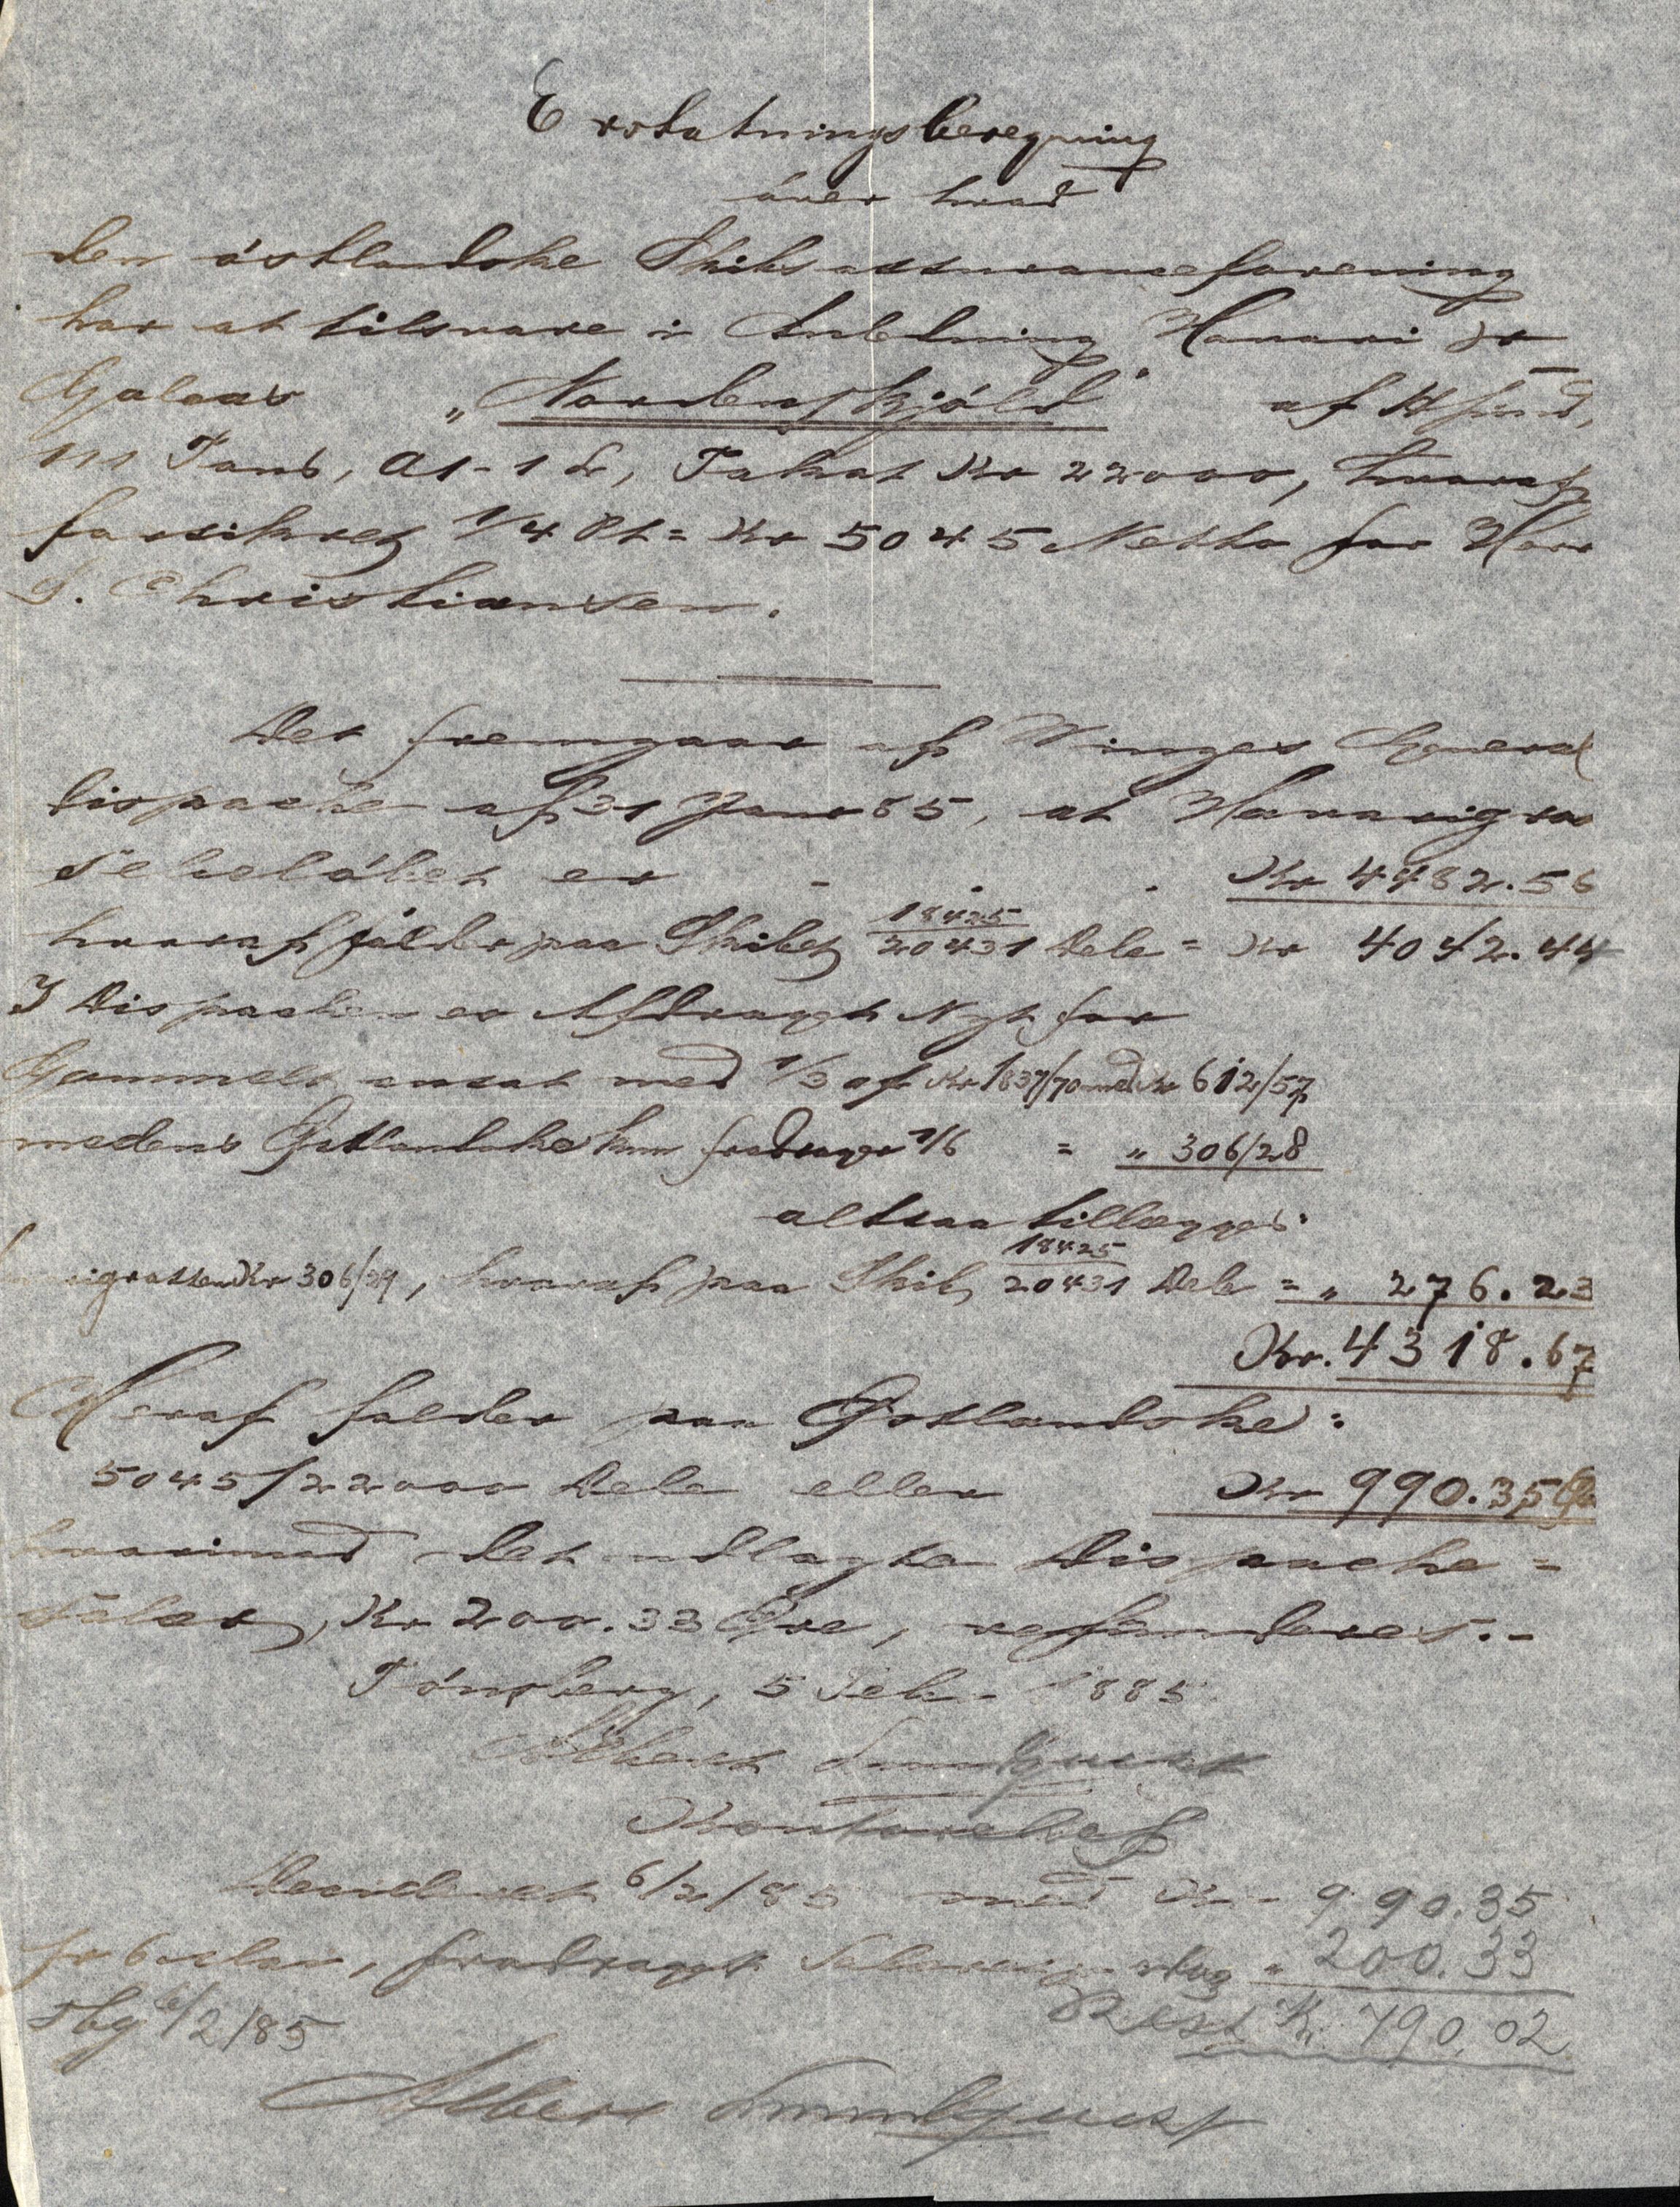 Erstatningsberegning
över hvad
den östlandske Skibsassuranceforening
har at tilsvare i Anledning Havari pr
Galeas "Nordenskjöld" af
111 Tons, A1-1 , Takst Kr 22000, hvoraf
forsikret 1/4 Pt = Kr 5045 Netto for Herr
S. Christiansen.
Det fremgaar af Winges General
dispache af 31 Janr 85, at Havarigros
sebelöbet er - - - Kr 4482.56
hvoraf falder paa Skibet 18425/20431 Dele = Kr 4042.44
I Dispachen er Afdraget Nyt for
Gammelt ansat med 1/3 af Kr 1837/70 med Kr 612/57
medens Östlandske kun fradrager 1/6 = " 306/28
altsaa tillægges
Kr 306/29, hvoraf paa Skib 18425/20431 Dele = " 276.23
Kr. 4318.67
Heraf falder paa Östlandske:
5045/22000 Dele eller Kr 990.35
hvorimod det udlagte Dispache-
salær, Kr 200.33 Öre, refunderes.-
Tönsberg, 5 Feb. 1885
Albert
Kontorchef
6/2/85 med Kr 990.35
, fradraget " 200.33
Tbg 6/2/85 Rest Kr. 790.02
Albert